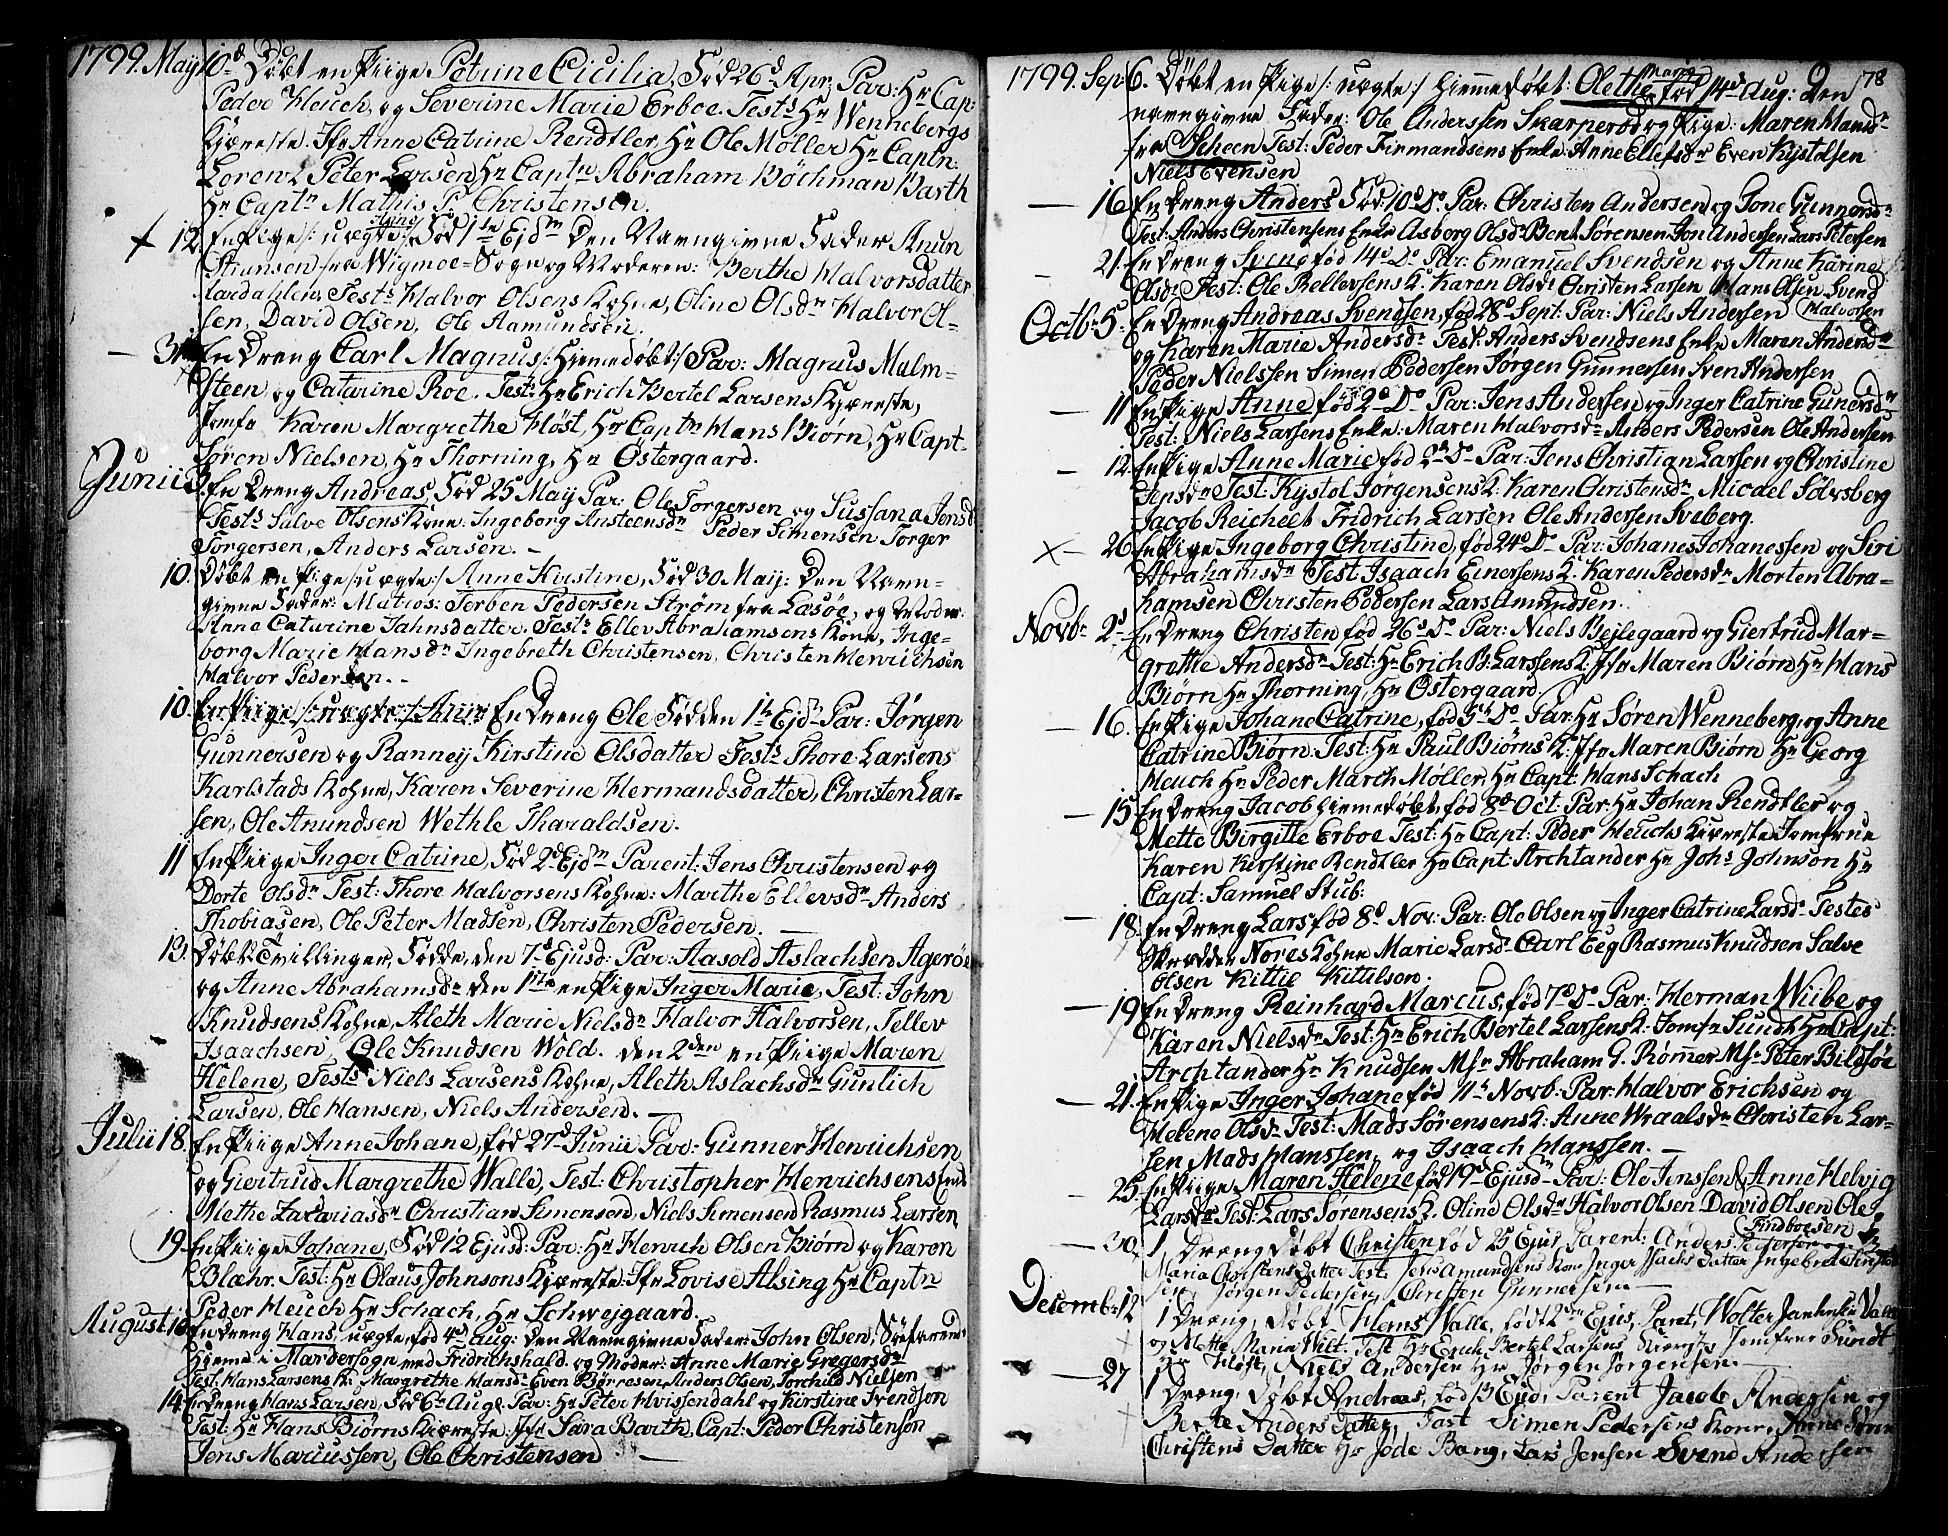 1799. May 10d Døbt en Piige Petrine Cicilia, Fød 26d Apr: Par: Hr Cap:
Peder Heuch, og Severine Marie Erboe. Tests Hr Wennebergs
Kiæreste. Jfr Anne Catrine Rendtler, Hr Ole Møller Hr Captn:
Lorentz Peter Larsen, Hr Captn Abraham Bøchman Barth
Hr Captn Mathis P. Christensen.
12. En Piige /: uægte :/ Anne Fød 1ste Ejdm Den Navngivne Fader Knun
fra Wigmoe-Sogn og Moderen: Berthe Halvorsdatter
Aardahlen, Tests Halvor Olsens Kohne, Oline Olsdr Halvor Ol-
sen, David Olsen, Ole Aamundsen.
31 En Dreng Carl Magnus /: Hiemedøbt :/ Par: Magnus Malm-
steen og Catarine Roe. Test: Hr Erich Bertel Larsens Kjæreste,
Jomfr Karen Margrethe Høst, Hr Captn Hans Biørn, Hr Capt
Søren Nielsen, Hr Thorning, Hr Østergaard.
Junii 3. En Dreng Andreas, Fød 25 May Par: Ole Torgersen og Sussana Jensd
Tests Salve Olsens Kone. Ingeborg Ansteensdr Peder Simensen Torger
Torgersen, Anders Larsen. –
10. Døbt en Pige /: uægte :/ Anne Kirstine, Fød 30 May: Den Navn-
givne Fader: Matros: Torben Pedersen Strøm fra Læsøe, og Moder
Anne Caturine Jahnsdatter. Tests Ellev Abrahamsens Kone, Inge-
borg Marie Hansdr Ingebreth Christensen, Christen Henrichsen
Halvor Pedersen. –
10. En Piige /: uægte :/ Anne En Dreng Ole Fød den 1ste Ejdm Par: Jørgen
Gunnersen og Ranney Kirstine Olsdatter Tests Thore Larsens
Karlstads Kohne, Karen Severine Hermandsdatter, Christen Lar-
sen, Ole Anundsen Wethle Tharaldsen.
11 En Piige Inger Catrine, Fød 2d Ejdm Parent: Jens Christensen og
Dorte Olsdr Test: Thore Halvorsens Kohne: Marthe Ellevsdr Anders
Thobiasen, Ole Peter Madsen, Christen Pedersen. –
13. Døbt Tvillinger, Fødde, den 7d Ejusd: Par: Aasold Aslachsen Agerøe
og Anne Abrahamsdr den 1ste en Piige Inger Marie, Test: John
Knudsens Kohne, Aleth Marie Nielsdr Halvor Halvorsen, Tellev
Isaachsen, Ole Knudsen Wold. den 2den en Piige Maren
Helene, Tests Niels Larsens Kohne, Aleth Aslachsdr Gunlich
Larsen, Ole Hansen, Niels Andersen. –
Julii 18. En Piige Anne Johane, fød 27d Junii Par: Gunner Henrichsen
og Giertrud Margrethe Walle, Test: Christopher Henrichsens Enke
Methe Zacariasdr Christian Simonsend, Niels Simensend Rasmus Larsen
19. En Piige Johane, Fød 12 Ejusd: Par: Hr Henrich Olsen Biørn og Karen
Blahr. Test: Hr Olaus Johnsons Kjæreste Jfr Lovise Alsing Hr Captn
Peder Heuch Hr Schach, Hr Schweigaard.
August 10 En Dreng Hans, uægte, fød 4d Aug: den Navngivne Fader: John Olsen, Søefarende
Hjeme i Mardersogn ved Fridrichshald, og Moder: Anne Marie Gregersdr
Test: Hans Larsens K: Margrethe Hansdr Even Børresen Anders Olsen, Torchild Nielsen
14 En Dreng Hans Larsen, Fød 6d Aug Par: Hr Peter Hvissendahl og Kirstine Svendsen
Test: Hr Hans Biørns Kiæreste: Jfr Sara Barth, Capt: Peder Christensen
Jens Marcussen, Ole Christensen –
78
1799. Sept 6. Døbt en Pige /: uægte :/ Hiemedøbt: Olethe Maria fød 14d Aug: Den
navngivne Fader: Ole Anderssen Skarperød og Pige: Maren Hansdr
fra Scheen Test: Peder Firmandsens Enke: Anne Ellefsdr Even Kystolsen
Niels Evensen
16 En Dreng Anders Fød 10d Do. Par: Christen Andersen og Gone Gunnersdr
Test: Anders Christensens Enke Aasborg Olsdr Bent Sørensen Jon Andersen Lars Petersen
21. En Dreng Svend født 14d Do Par: Emanuel Svendsen og Anne Karine
Olsdr Test: Ole Rellevsens K: Karen Olsdr Christen Larsen Hans Olsen Svend
Halvorsen
Octb: 5. En Dreng Andreas Svendsen, fød 28d Sept: Par: Niels Andersen
og Karen Marie Andersdr Test: Anders Svendsens Enke Maren Andersdr
Peder Nielssen Simen Pedersen Jørgen Gunnersen Sven Andersen
11 En Pige Anne fød 2d Do Par: Jens Andersen og Inger Catrine Gunersdr
Test: Niels Larsens Enke: Maren Halvorsdr Anders Pedersen Ole Andersen
12. En Pige Anne Marie fød Do Par: Jens Christian Larsen og Christine
Jensdr Test: Kystol Jørgensens K: Karen Christensdr Micael Sølvsberg
Jacob Reichelt Fridrich Larsen Ole Andersen Sveberg.
26 En Pige Ingeborg Christine, fød 24d Do Par: Johanes Johanessen og Siri
Abrahamsdr Test: Isaach Einersens K: Karen Pedersdr Morten Abra-
hamsen Christen Pedersen Lars Amundsen.
Novb: 2d En Dreng Christen fød 26d Do Par: Niels Bejlegaard og Giertrud Mar-
grette Andersdr Test: Hr Erich B: Larssens K: Jfr Maren Biørn Hr Hans
Biørn Hr Thorning, Hr Østergaard.
16. En Pige Johane Catrine, fød 5d Do Par: Hr Søren Wenneberg, og Anne
Catrine Biørn: Test: Hr Paul Biørns K: Jfr Maren Biørn Hr Georg
Heuch Hr Peder March Møller, Hr Capt: Hans Schach
15 En Dreng Jacob Hiemedøbt, fød 8d Oct: Par: Hr Johan Rendtler og
Mette Birgitte Erboe Test: Hr Capt: Peder Heuchs Kiæreste Jomfrue
Karen Kirstine Rendtler Hr Capt: Archtander Hr Johs Johnson Hr
Capt: Samuel Stub:
18 En Dreng Lars fød 8d Nov: Par: Ole Olsen og Inger Catrine Larsd. Testes
Skrædder Nores Kohne Marie Larsd. Carl Eeg Rasmus Knudsen Salve
Olsen Kittie Kittelson.
19 En Dreng Reinhard Marcus, fød 7d Do Par: Herman Wiibe og
Karen Nielsdr Test: Hr Erich Bertel Larsens K: Jomfr Sundt Hr Capt:
Archtander Hr Knudsen Msr Abraham G. Rømer Msr Peter Bilssøe
21. En Pige Inger Johane fød 11te Novb: Par: Halvor Erichsen og
Helene Olsdr Test: Mads Sørensens K: Anne Wraalsdr Christen Lar-
sen Mads Hanssen, og Isaach Hanssen. –
25 En Piige Maren Helene, fød 19d Ejusdm Par: Ole Jenssen & Anne Helvig
Larsdr Test: Lars Sørensens K. Oline Olsdr Halvor Olsen David Olsen Ole
Findboesen
30 1 Dreng Døbt Christen fød 25 Ejus Parent: Anders Pettersen
Maria Christens Datter Test: Jens Amundsens Kone Inger Isachs Datter Ingebret
sen, Jørgen Pedersen, Christen Gunnersen –
Decemb: 12 1 Dreng, Døbt Hans Walle, født 2den Ejus, Parent, Wolter
og Mette Maria Wilt. Test Hr Erich Bertel Larsens Kiæreste Jomfrue Sundt
Hr Høst, Niels Andersen Hr Jørgen Jørgensen. –
27 1 Dreng, Døbt Andreas, fød Ejud, Parent Jacob Andersen og
Berte Anders Datter, Test Simen Pedersens Kone, Anne
Christens Datter Hr Jøde Bang, Lars Jensen Svend Andersen